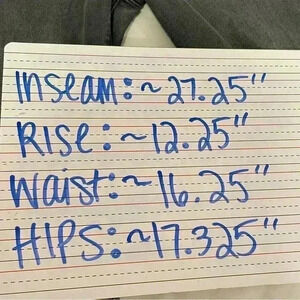 Inseam: ~27.25"
Rise: ~12.25"
Waist: ~16.25"
HIPS: ~17.325"